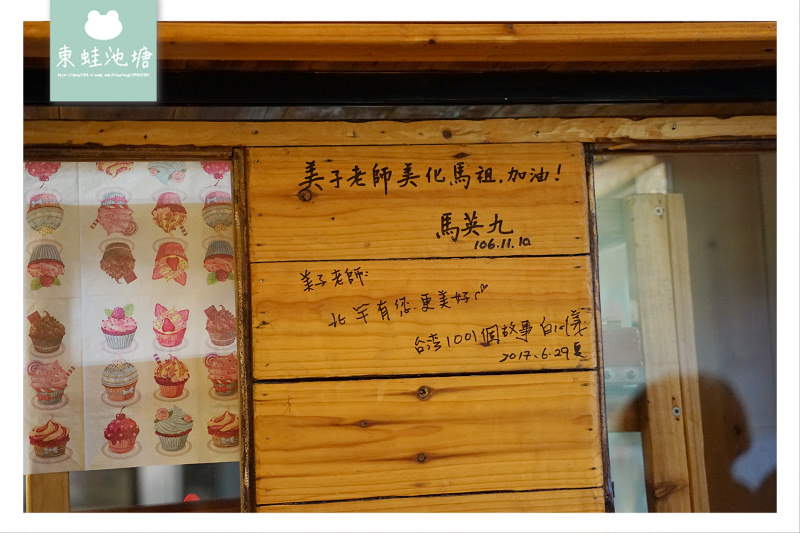 東蛙池塘
美子老師美化馬祖,加油!
馬英九
106.11.10
美子老師:
北竿有您.更美好
台灣1001個故事 白心儀
2017.6.29夏